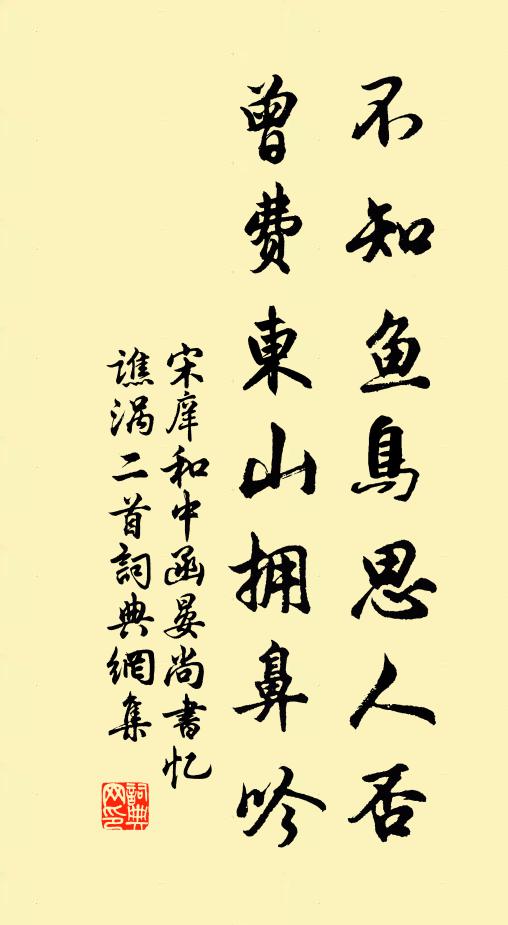 不知鱼鳥思人否
曾费東山拥鼻吟
宋庠和中函晏尚書忆
譙涡二首詞典網集
詞典网印